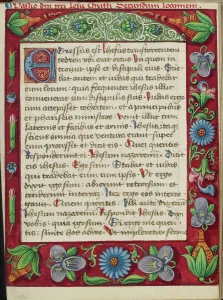 Passio dni nri Jhu Christi Secundum Joannem
Egressus est Jhesus trans torrentem
cedron ubi erat ortus in quem in
troivit ipse et discipuli eius Scie
bat autem et iudas qui tradebat
eum locum quia frequenter ihesus illuc
convenerat cum discipulis suis Iudas ergo
cum accepisset cohortem et a pontificibus
et phariseis ministros venit illuc cum
laternis et facibus et armis Ihesus itaque
sciens omnia que ventura erant super
eum processit et dixit eis Quem queritis
Responderunt ei Ihesum nazarenum Dicit
eis ihesus Ego sum Stabat autem et
iudas qui tradebat eum cum ipsis Ut ergo
dixit eis ego sum abierunt retrorsum et
ceciderunt in terram Iterum ergo eos interro
gavit Quem queritis Illi autem dixerunt
Ihesum nazarenum Respondit ihesus Dixi
vobis quia ego sum Si ergo me queri
tis sinite hos abire Ut impleretur sermo